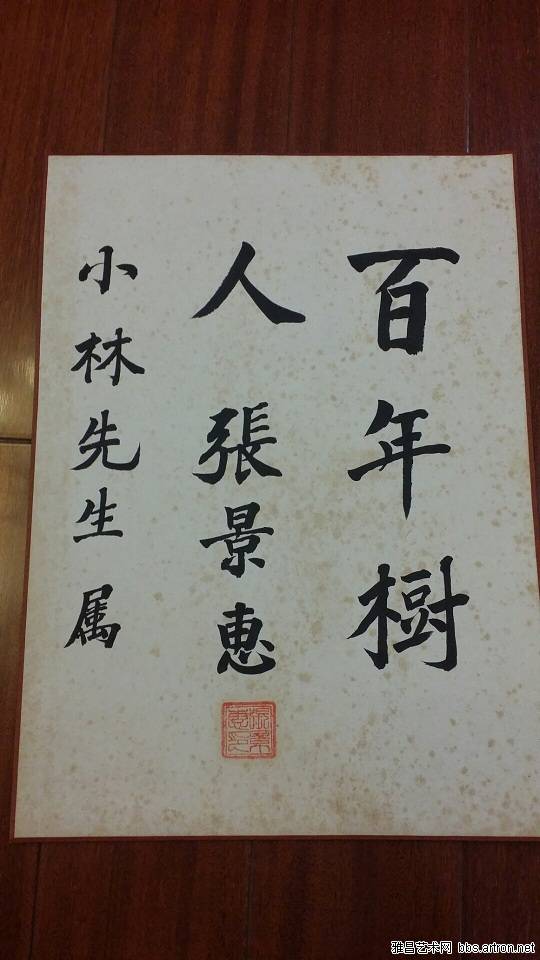 百年樹
人 張景惠
小林先生属
雅昌艺术网 bbs.artron.net